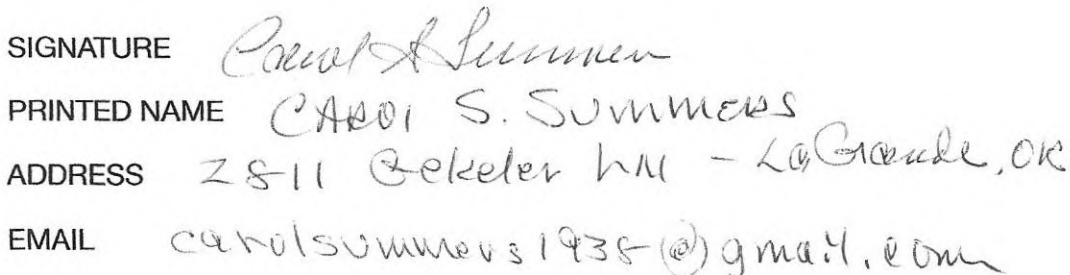 SIGNATURE Carol S Summers
PRINTED NAME CAROL S. SUMMERS
ADDRESS 2811 Gekeler LN - LaGrande, OR
EMAIL carolsummers1938@gmail.com